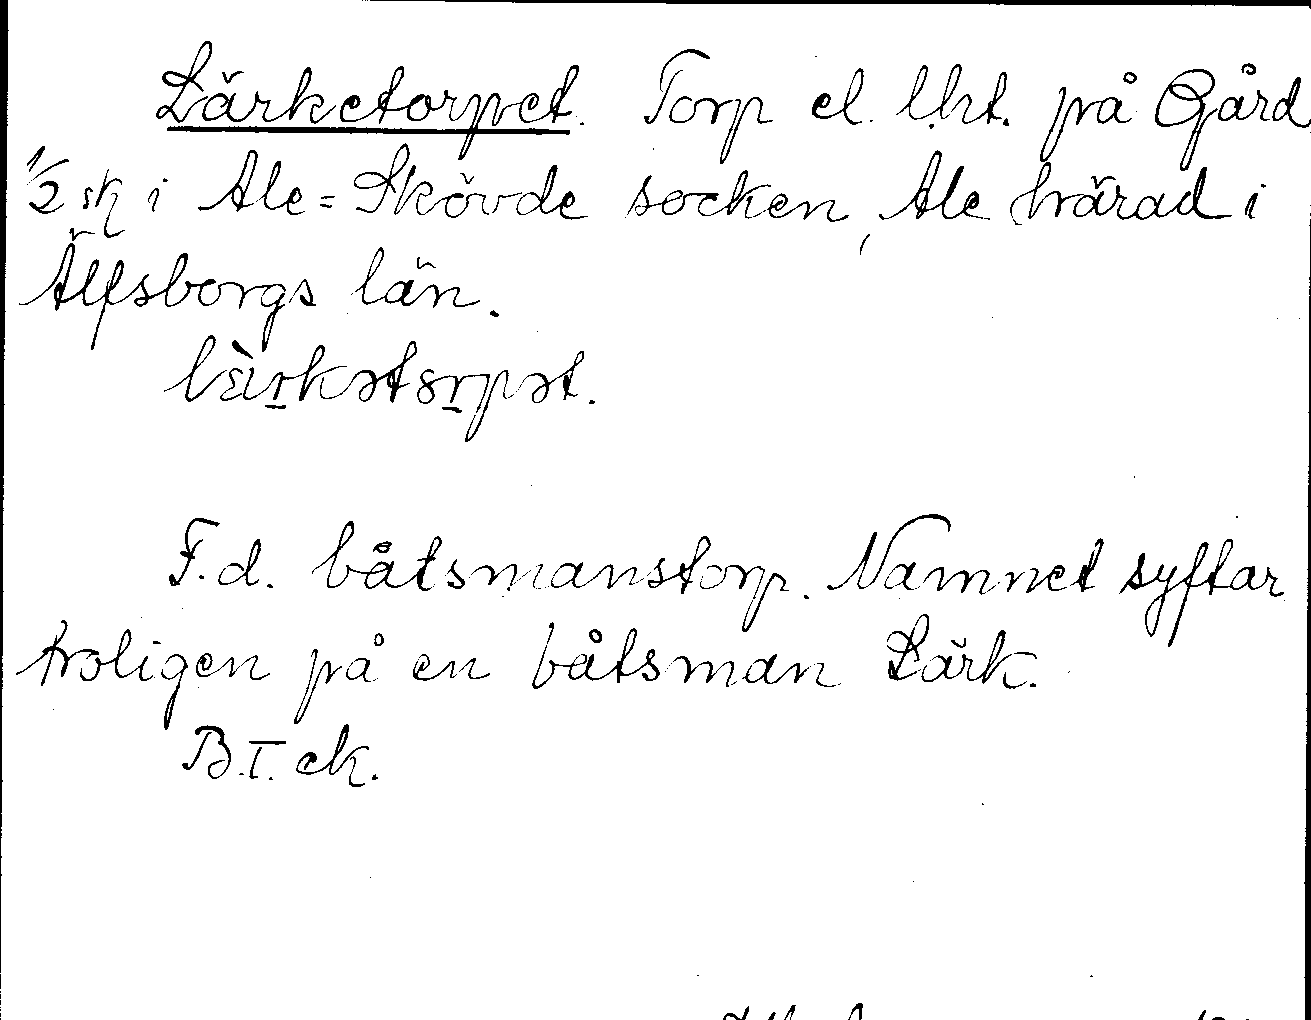 Lärketorpet. Torp el. lht. på Gård
1/2 sk i Ale=Skövde socken, Ale härad i
Älfsborgs län.
F.d. båtsmanstorp. Namnet syftar
troligen på en båtsman Lärk.
B.I. ek.